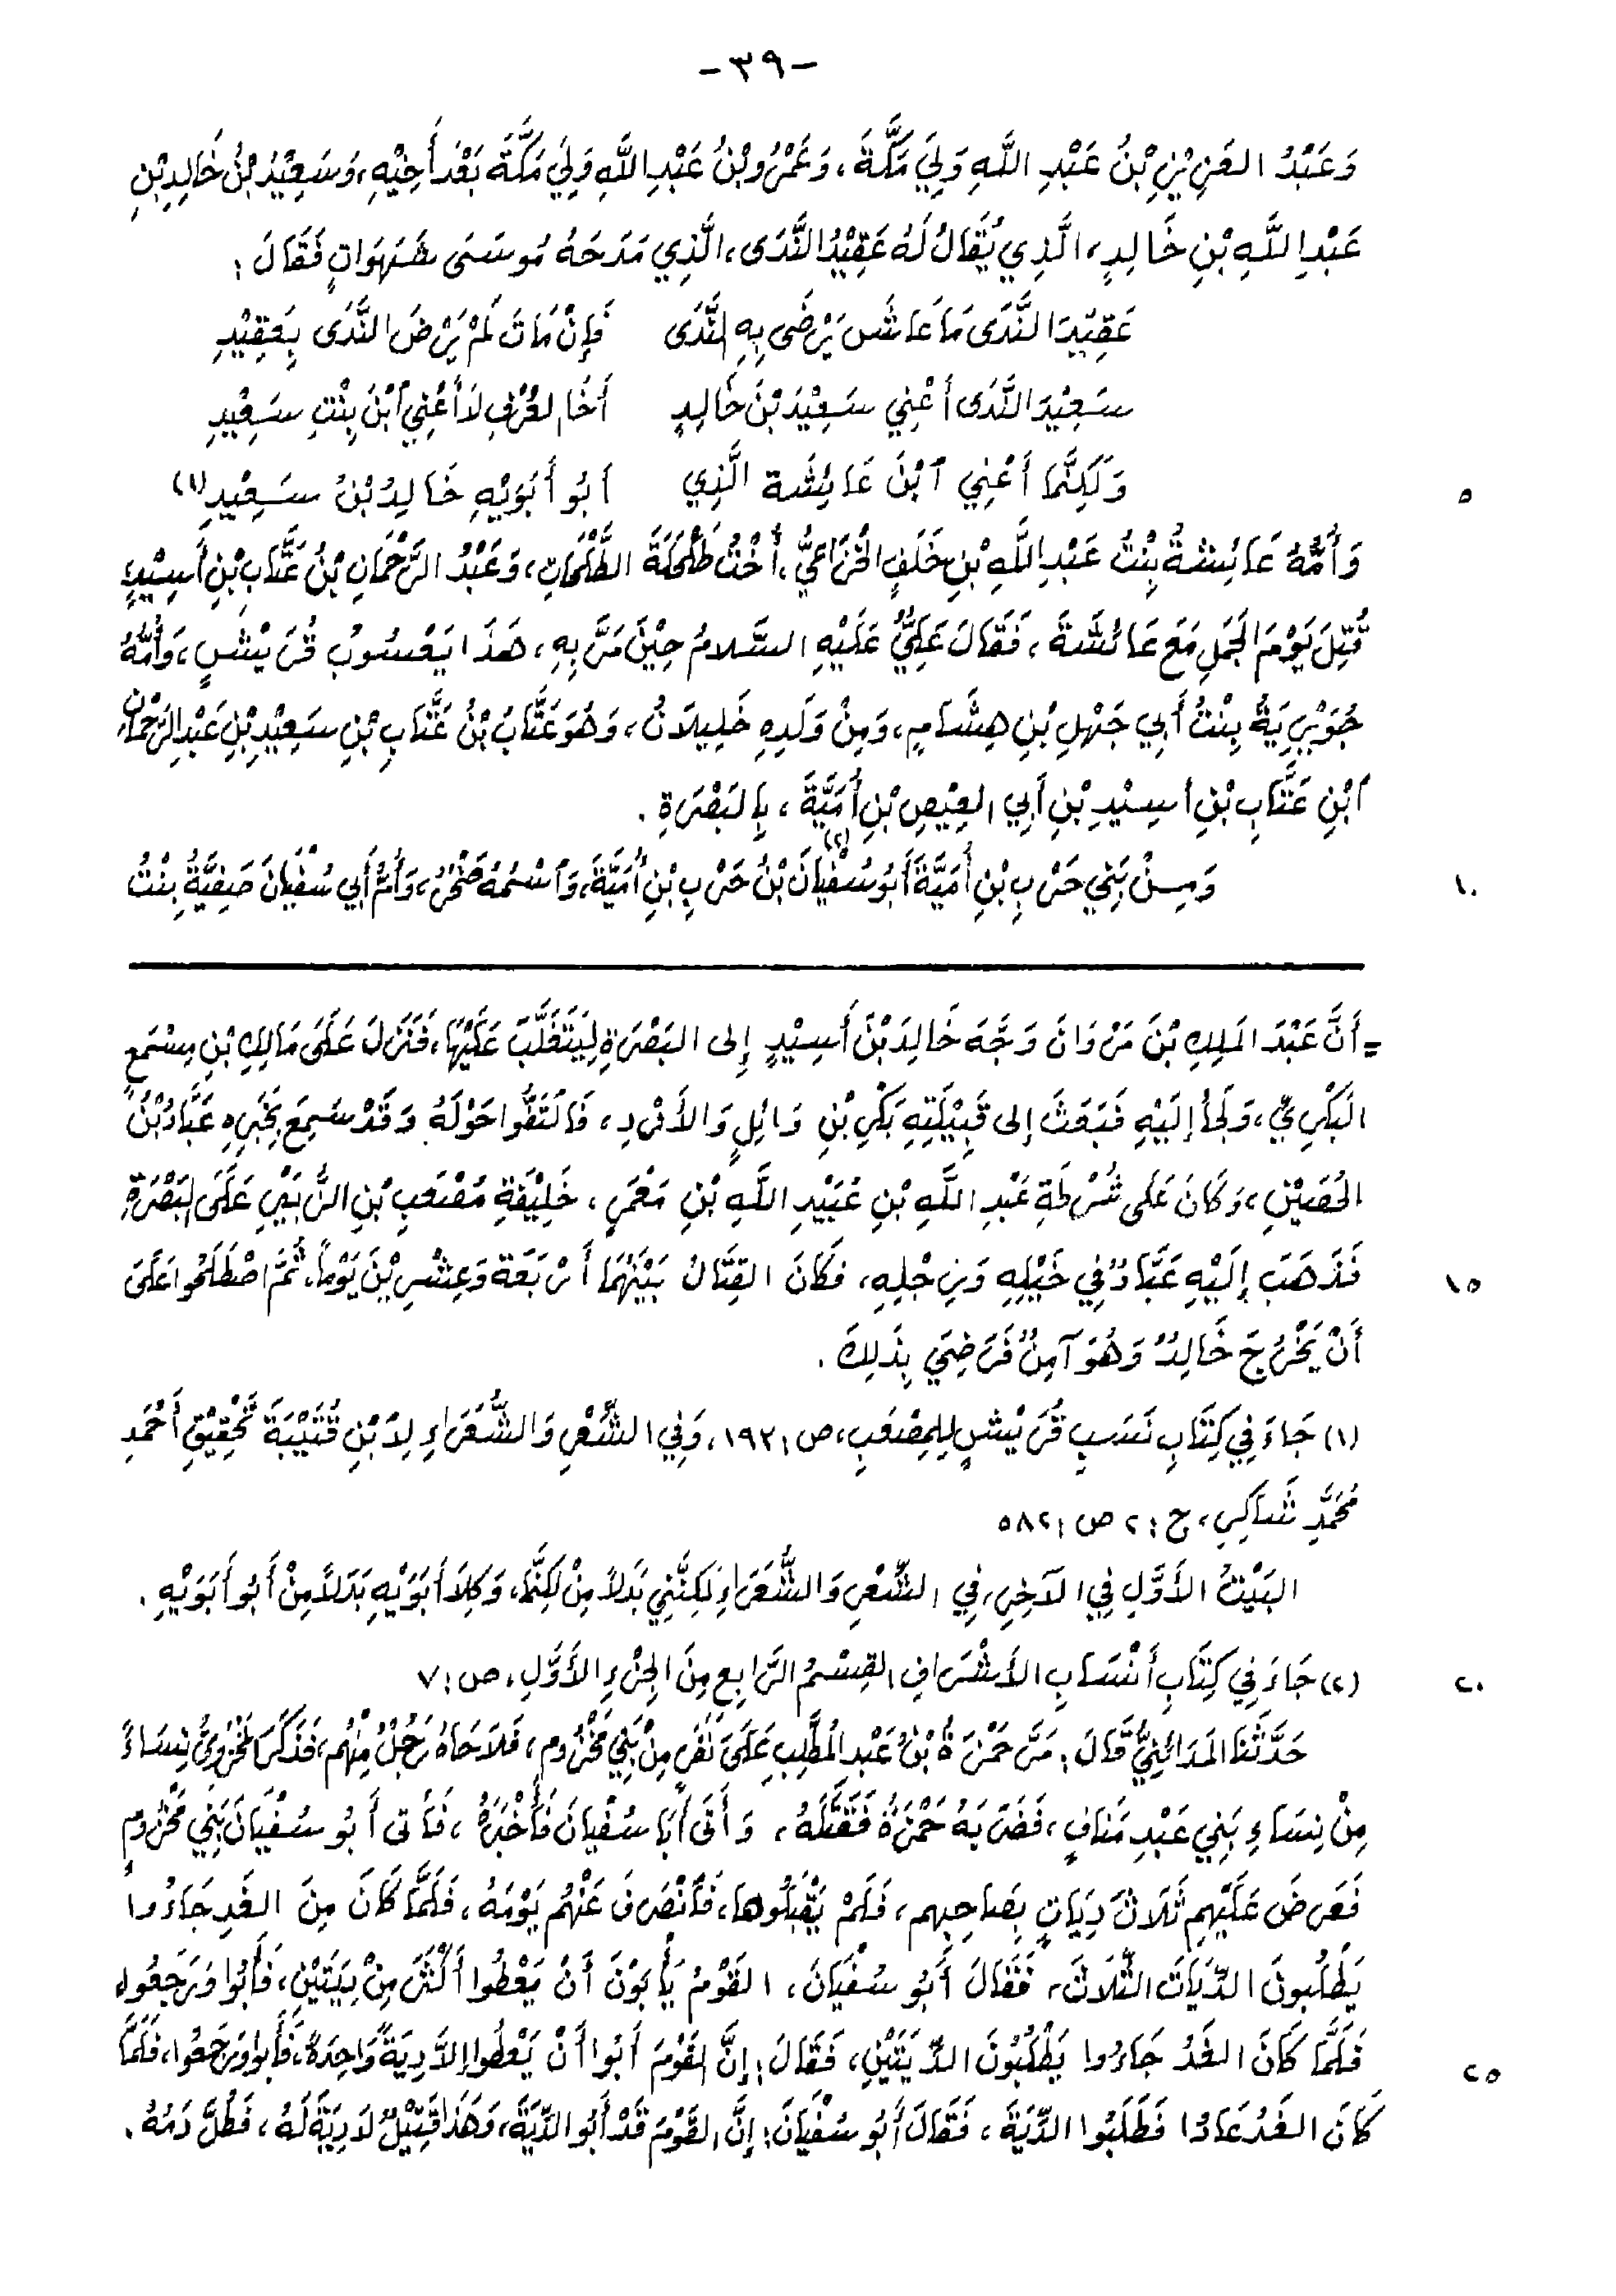 -٣٩-
وَعَبْدُ العَزِيْزِ بْنُ عَبْدِ اللَّهِ وَلِيَ مَكَّةَ، وَعَمْرُو بْنُ عَبْدِ اللَّهِ وَلِيَ مَكَّةَ بَعْدَ أَخِيْهِ، وَسَعِيْدُ بْنُ خَالِدِ بْنِ
عَبْدِ اللَّهِ بْنِ خَالِدٍ، الَّذِي يُقَالُ لَهُ عَقِيْدُ النَّدَى، الَّذِي مَدَحَهُ مُوسَى شَهَوَاتٍ فَقَالَ:
عَقِيْدَ النَّدَى مَا عَاشَ يَرْضَى بِهِ النَّدَى فَإِنْ مَاتَ لَمْ يَرْضَ النَّدَى بِعَقِيْدِ
سَعِيْدَ النَّدَى أَعْنِي سَعِيْدَ بْنَ خَالِدٍ أَخَا العُرْفِ لَا أَعْنِي ٱبْنَ بِنْتِ سَعِيْدِ
وَلَكِنَّمَا أَعْنِي ٱبْنَ عَائِشَةَ الَّذِي أَبُو أَبَوَيْهِ خَالِدُ بْنُ سَعِيْدِ (١)
٥
وَأُمُّهُ عَائِشَةُ بِنْتُ عَبْدِ اللَّهِ بْنِ خَلَفٍ الخُزَاعِيِّ، أُخْتُ طَلْحَةَ الطَّلَحَاتِ، وَعَبْدُ الرَّحْمَانِ بْنُ عَتَّابِ بْنِ أَسِيْدٍ،
قُتِلَ يَوْمَ الجَمَلِ مَعَ عَائِشَةَ، فَقَالَ عَلِيٌّ عَلَيْهِ السَّلَامُ حِيْنَ مَرَّ بِهِ، هَذَا يَعْسُوبُ قُرَيْشٍ، وَأُمُّهُ
جُوَيْرِيَةُ بِنْتُ أَبِي جَهْلِ بْنِ هِشَامٍ، وَمِنْ وَلَدِهِ خَلِيلَانُ، وَهُوَ عَتَّابُ بْنُ عَتَّابِ بْنِ سَعِيْدِ بْنِ عَبْدِ الرَّحْمَانِ
ٱبْنِ عَتَّابِ بْنِ أَسِيْدِ بْنِ أَبِي العِيْصِ بْنِ أُمَيَّةَ، بِالبَصْرَةِ.
وَمِنْ بَنِي حَرْبِ بْنِ أُمَيَّةَ أَبُو سُفْيَانَ (٢) بْنُ حَرْبِ بْنِ أُمَيَّةَ، وَٱسْمُهُ صَخْرُ، وَأُمُّ أَبِي سُفْيَانَ صَفِيَّةُ بِنْتُ
١٠
= أَنَّ عَبْدَ المَلِكِ بْنَ مَرْوَانَ وَجَّهَ خَالِدَ بْنَ أَسِيْدٍ إِلى البَصْرَةِ لِيَتَغَلَّبَ عَلَيْهَا، فَنَزَلَ عَلَى مَالِكِ بْنِ مِسْمَعٍ
البَكْرِيِّ، وَلَجَأَ إِلَيْهِ فَبَعَثَ إِلى قَبِيْلَتِهِ بَكْرِ بْنِ وَائِلٍ وَالأَزْدِ، فَالتَفُّوا حَوْلَهُ وَقَدْ سَمِعَ بِخَبَرِهِ عَبَّادُ بْنُ
الحُصَيْنِ، وَكَانَ عَلَى شُرْطَةِ عَبْدِ اللَّهِ بْنِ عُبَيْدِ اللَّهِ بْنِ مَعْمَرٍ، خَلِيْفَةِ مُصْعَبِ بْنِ الزُّبَيْرِ عَلَى البَصْرَةِ،
فَذَهَبَ إِلَيْهِ عَبَّادٌ فِي خَيْلِهِ وَرِجْلِهِ، فَكَانَ القِتَالُ بَيْنَهُمَا أَرْبَعَةَ وَعِشْرِيْنَ يَوْماً، ثُمَّ اصْطَلَحُوا عَلَى
١٥
أَنْ يَخْرُجَ خَالِدٌ وَهُوَ آمِنٌ فَرَضِيَ بِذَلِكَ.
(١) جَاءَ فِي كِتَابِ نَسَبِ قُرَيْشٍ لِلمِصْعَبِ، ص: ١٩٣، وَفِي الشِّعْرِ وَالشُّعَرَاءِ لِابْنِ قُتَيْبَةَ تَحْقِيْقِ أَحْمَدِ
مُحَمَّدِ شَاكِرِ، ج: ٢ ص: ٥٨٢
البَيْتُ الأَوَّلِ فِي الآخِرِ، فِي الشِّعْرِ وَالشُّعَرَاءِ لَكِنَّنِي بَدَلاً مِنْ لَكِنَّمَا، وَكِلَا أَبَوَيْهِ بَدَلاً مِنْ أَبُو أَبَوَيْهِ.
(٢) جَاءَ فِي كِتَابِ أَنْسَابِ الأَشْرَافِ القِسْمُ الرَّابِعِ مِنَ الجُزْءِ الأَوَّلِ، ص: ٧
٢٠
حَدَّثَنَا المَدَائِنِيُّ قَالَ: مَرَّ حَمْزَةُ بْنُ عَبْدِ المُطَّلِبِ عَلَى نَفَرٍ مِنْ بَنِي مَخْزُومٍ، فَلَاحَاهُ رَجُلٌ مِنْهُم، فَذَكَرَ المَخْزُومِيُّ نِسَاءً
مِنْ نِسَاءِ بَنِي عَبْدِ مَنَافٍ، فَضَرَبَهُ حَمْزَةُ فَقَتَلَهُ، وَأَتَى أَبَا سُفْيَانَ فَأَخْبَرَهُ، فَأَتى أَبُو سُفْيَانَ بَنِي مَخْزُومٍ
فَعَرَضَ عَلَيْهِم ثَلَاثَ دِيَاتٍ بِصَاحِبِهِم، فَلَمْ يَقْبَلُوهَا، فَٱنْصَرَفَ عَنْهُم يَوْمَهُ، فَلَمَّا كَانَ مِنَ الغَدِ جَاءُوا
يَطْلُبُونَ الدِّيَاتَ الثَّلَاثَ، فَقَالَ أَبُو سُفْيَانَ، القَوْمُ يَأْبَوْنَ أَنْ يَعْطُوا أَكْثَرَ مِنْ دِيَتَيْنِ، فَأَبُوا وَرَجَعُوا،
فَلَمَّا كَانَ الغَدُ جَاءُوا يَطْلُبُونَ الدِّيَتَيْنِ، فَقَالَ: إِنَّ القَوْمَ أَبُوا أَنْ يَعْطُوا إِلاَّ دِيَةً وَاحِدَةً، فَأَبوا وَرَجَعُوا، فَلَمَّا
٢٥
كَانَ الغَدُ عَادُوا فَطَلَبُوا الدِّيَةَ، فَقَالَ أَبُو سُفْيَانَ: إِنَّ القَوْمَ قَدْ أَبُو الدِّيَةَ، وَهَذَا قَتِيْلٌ لَا دِيَةَ لَهُ، فَطُلَّ دَمُهُ.